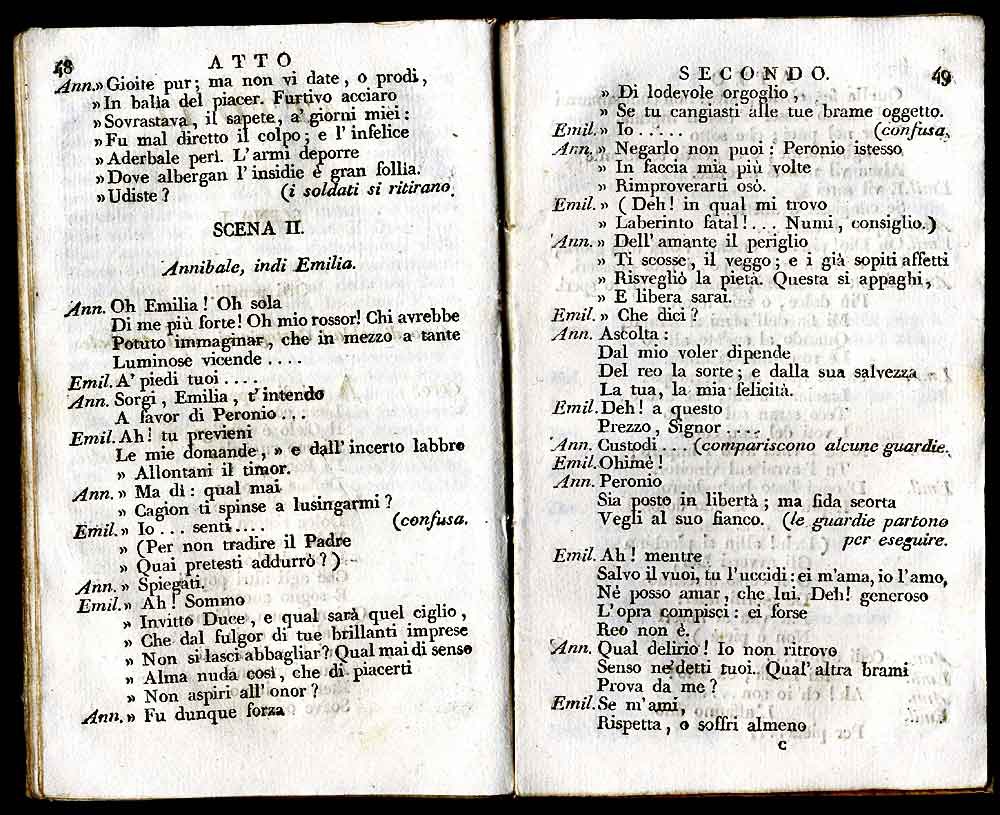 48
ATTO
Ann.» Gioite pur; ma non vi date, o prodi,
» In balìa del piacer. Furtivo acciaro
» Sovrastava, il sapete, a' giorni miei:
» Fu mal diretto il colpo; e l' infelice
» Aderbale perì. L'armi deporre
» Dove albergan l'insidie è gran follìa.
» Udiste? (i soldati si ritirano.
SCENA II.
Annibale, indi Emilia.
Ann. Oh Emilia! Oh sola
Di me più forte! Oh mio rossor! Chi avrebbe
Potuto immaginar, che in mezzo a tante
Luminose vicende ....
Emil. A' piedi tuoi ....
Ann. Sorgi, Emilia, t'intendo
A favor di Peronio ...
Emil. Ah! tu previeni
Le mie domande, » e dall' incerto labbro
» Allontani il timor.
Ann. » Ma dì: qual mai
» Cagion ti spinse a lusingarmi?
Emil. » Io ... senti .... (confusa.
» (Per non tradire il Padre
» Quai pretesti addurrò?)
Ann. » Spiegati.
Emil. » Ah! Sommo
» Invitto Duce, e qual sarà quel ciglio,
» Che dal fulgor di tue brillanti imprese
» Non si lasci abbagliar? Qual mai di senso
» Alma nuda così, che di piacerti
» Non aspiri all' onor?
Ann. » Fu dunque forza
SECONDO.
49
» Di lodevole orgoglio,
» Se tu cangiasti alle tue brame oggetto.
Emil. » Io ..... (confusa.
Ann. » Negarlo non puoi: Peronio istesso
» In faccia mia più volte
» Rimproverarti osò.
Emil. » (Deh! in qual mi trovo
» Laberinto fatal!... Numi, consiglio.)
Ann. » Dell' amante il periglio
» Ti scosse, il veggo; e i già sopiti affetti
» Risvegliò la pietà. Questa si appaghi,
» E libera sarai.
Emil. » Che dici?
Ann. Ascolta:
Dal mio voler dipende
Del reo la sorte; e dalla sua salvezza
La tua, la mia felicità.
Emil. Deh! a questo
Prezzo, Signor ....
Ann. Custodi ... (compariscono alcune guardie.
Emil. Ohimè!
Ann. Peronio
Sia posto in libertà; ma fida scorta
Vegli al suo fianco. (le guardie partono
per eseguire.
Emil. Ah! mentre
Salvo il vuoi, tu l'uccidi: ei m'ama, io l'amo,
Nè posso amar, che lui. Deh! generoso
L'opra compisci: ei forse
Reo non è.
Ann. Qual delirio! Io non ritrovo
Senso ne' detti tuoi. Qual' altra brami
Prova da me?
Emil. Se m'ami,
Rispetta, o soffri almeno
C